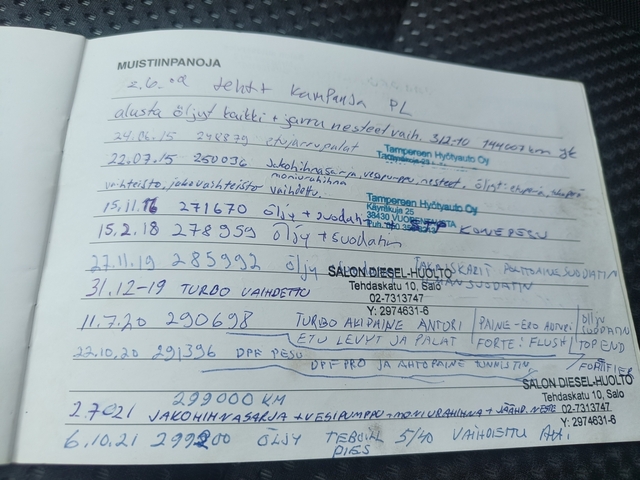 MUISTIINPANOJA
2.6.09 teht. kampanja PL
alusta öljyt kaikki + jarrunesteet vaih. 3.12.10 144007 km
24.06.15 248879 etujarrupalat
Tampereen Hyötyauto Oy
22.07.15 250036 Jakohihnasarja, vesipumppu, nesteet, öljyt:
moniurahihna
vaihteisto, jakovaihteisto vaihdettu.
Tampereen Hyötyauto Oy
Käyrätkuja 25
15.11.16 271670 öljy + suodatin
38430
KONEPESU
15.2.18 278959 öljy + suodatin
27.11.19 285992 öljy
POLTTOAINESUODATIN
SALON DIESEL-HUOLTO
Tehdaskatu 10, Salo
02-7313747
Y: 2974631-6
31.12-19 TURBO VAIHDETTU
11.7.20 290698 TURBO AKIPAINE ANTURI PAINE-ERO ANTURI ÖLJY SUODATIN
ETU LEVYT JA PALAT FORTE: FLUSH TOP END
22.10.20 291396 DPF PESU FORTIFIER
DPF PRO JA AHTOPAINE TUNNISTIN
SALON DIESEL-HUOLTO
Tehdaskatu 10, Salo
02-7313747
Y: 2974631-6
299000 KM
2.7.021 JAKOHIHNASARJA + VESIPUMPPU + MONIURAHIHNA + JÄÄHD. NESTE
6.10.21 299200 ÖLJY TEBOIL 5/40 VAIHDETTU